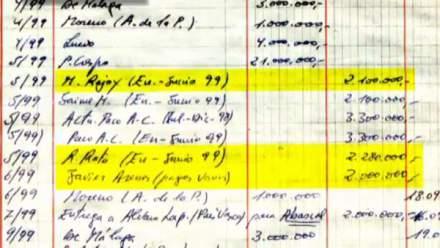 4/99 De Málaga 3.000.000,-
4/99 Moreno (A. de la P.) 1.000.000,-
4/99 4.000.000,-
5/99 P. Crespo 21.000.000,-
5/99 M. Rajoy (En.-Junio 99) 2.100.000,-
5/99 Jaime M. (En.-Junio 99) 2.100.000,-
5/99 Acta. Paco A-C. (Jul-Dic-98) 3.300.000,-
5/99) Paco A-C. (En-Junio 99) 3.300.000,-
5/99 R. Rato (En-Junio 99) 2.280.000,-
6/99 Javier Arenas (pagos varios) 2.000.000,-
6/99 Moreno (A. de la P.) 1.000.000 18.0
7/99 Entrega a Alvaro Lap. (País Vasco) para Abascal 2.000.000,-
9/99 De Málaga 3.000.000 19.0